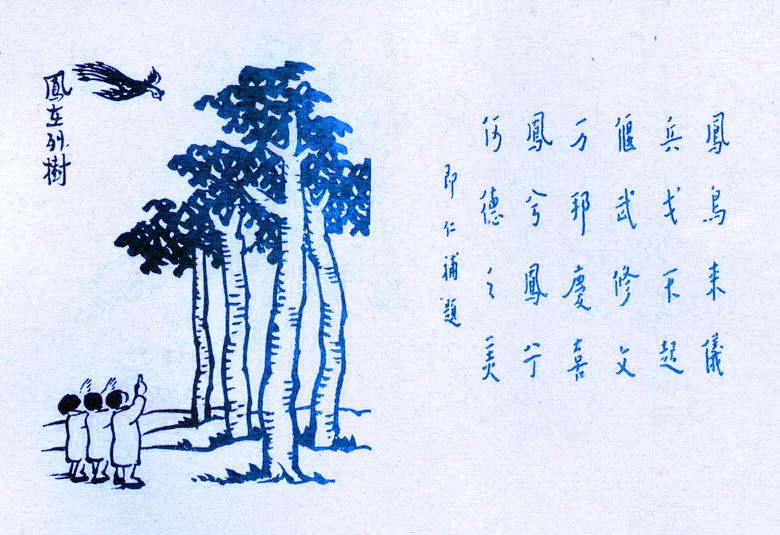 鳳鳥来儀
兵戈不起
偃武修文
万邦慶喜
鳳兮鳳兮
何德之美
即仁補題
鳳在列樹